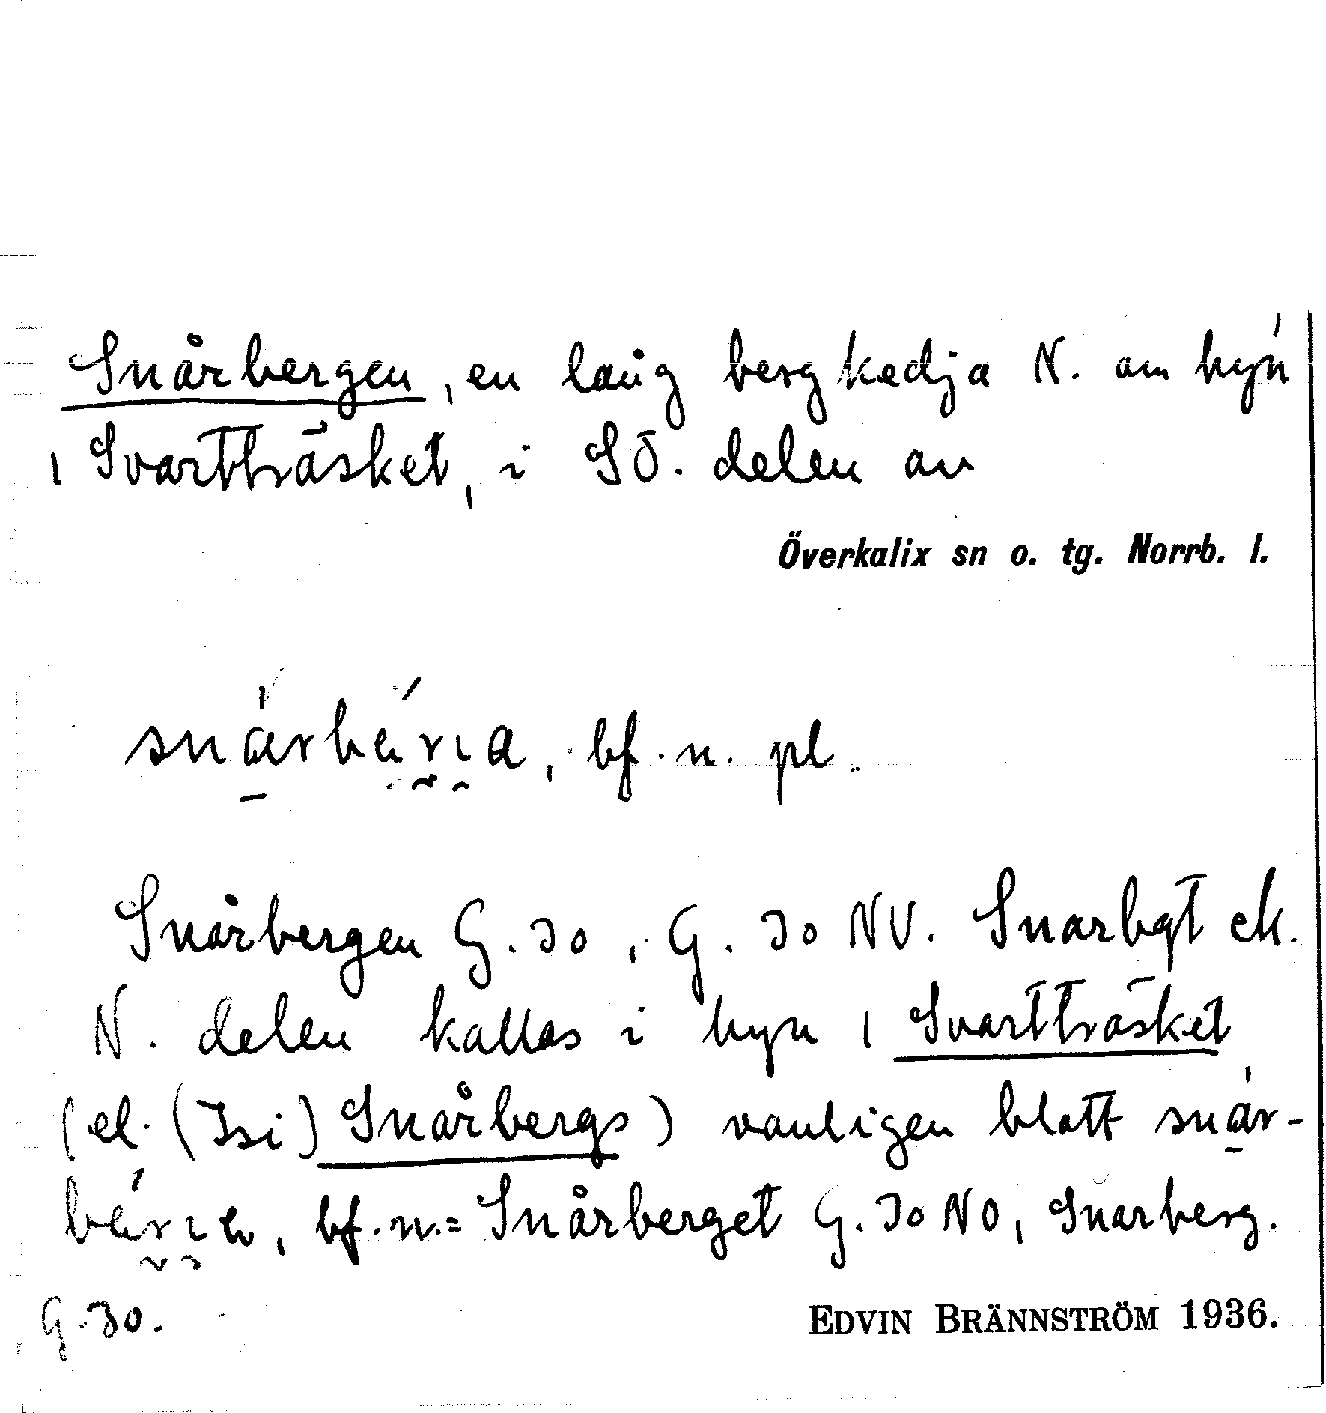 Snårbergen, en lång bergkedja N. om byn
i Svartträsket, i SÖ. delen av
Överkalix sn o. tg. Norrb. l.
snårbärıa, bf. n. pl.
Snårbergen G. 30, G. 30 NV. Snarbgt ek.
N. delen kallas i byn i Svartträsket
(el. (Isi) Snårbergs) vanligen blott snår-
bärıe, bf. n. = Snårberget G. 30 NO, Snarberg.
G. 30.
EDVIN BRÄNNSTRÖM 1936.